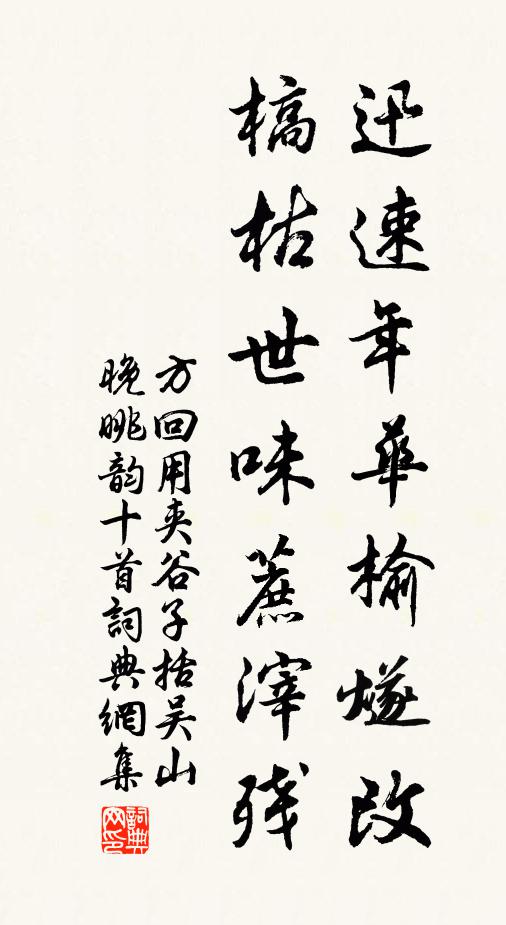 迅速年華榆燧改
槁枯世味蔗滓残
方回用夹谷子括吴山
晚眺韵十首詞典網集
詞典网印